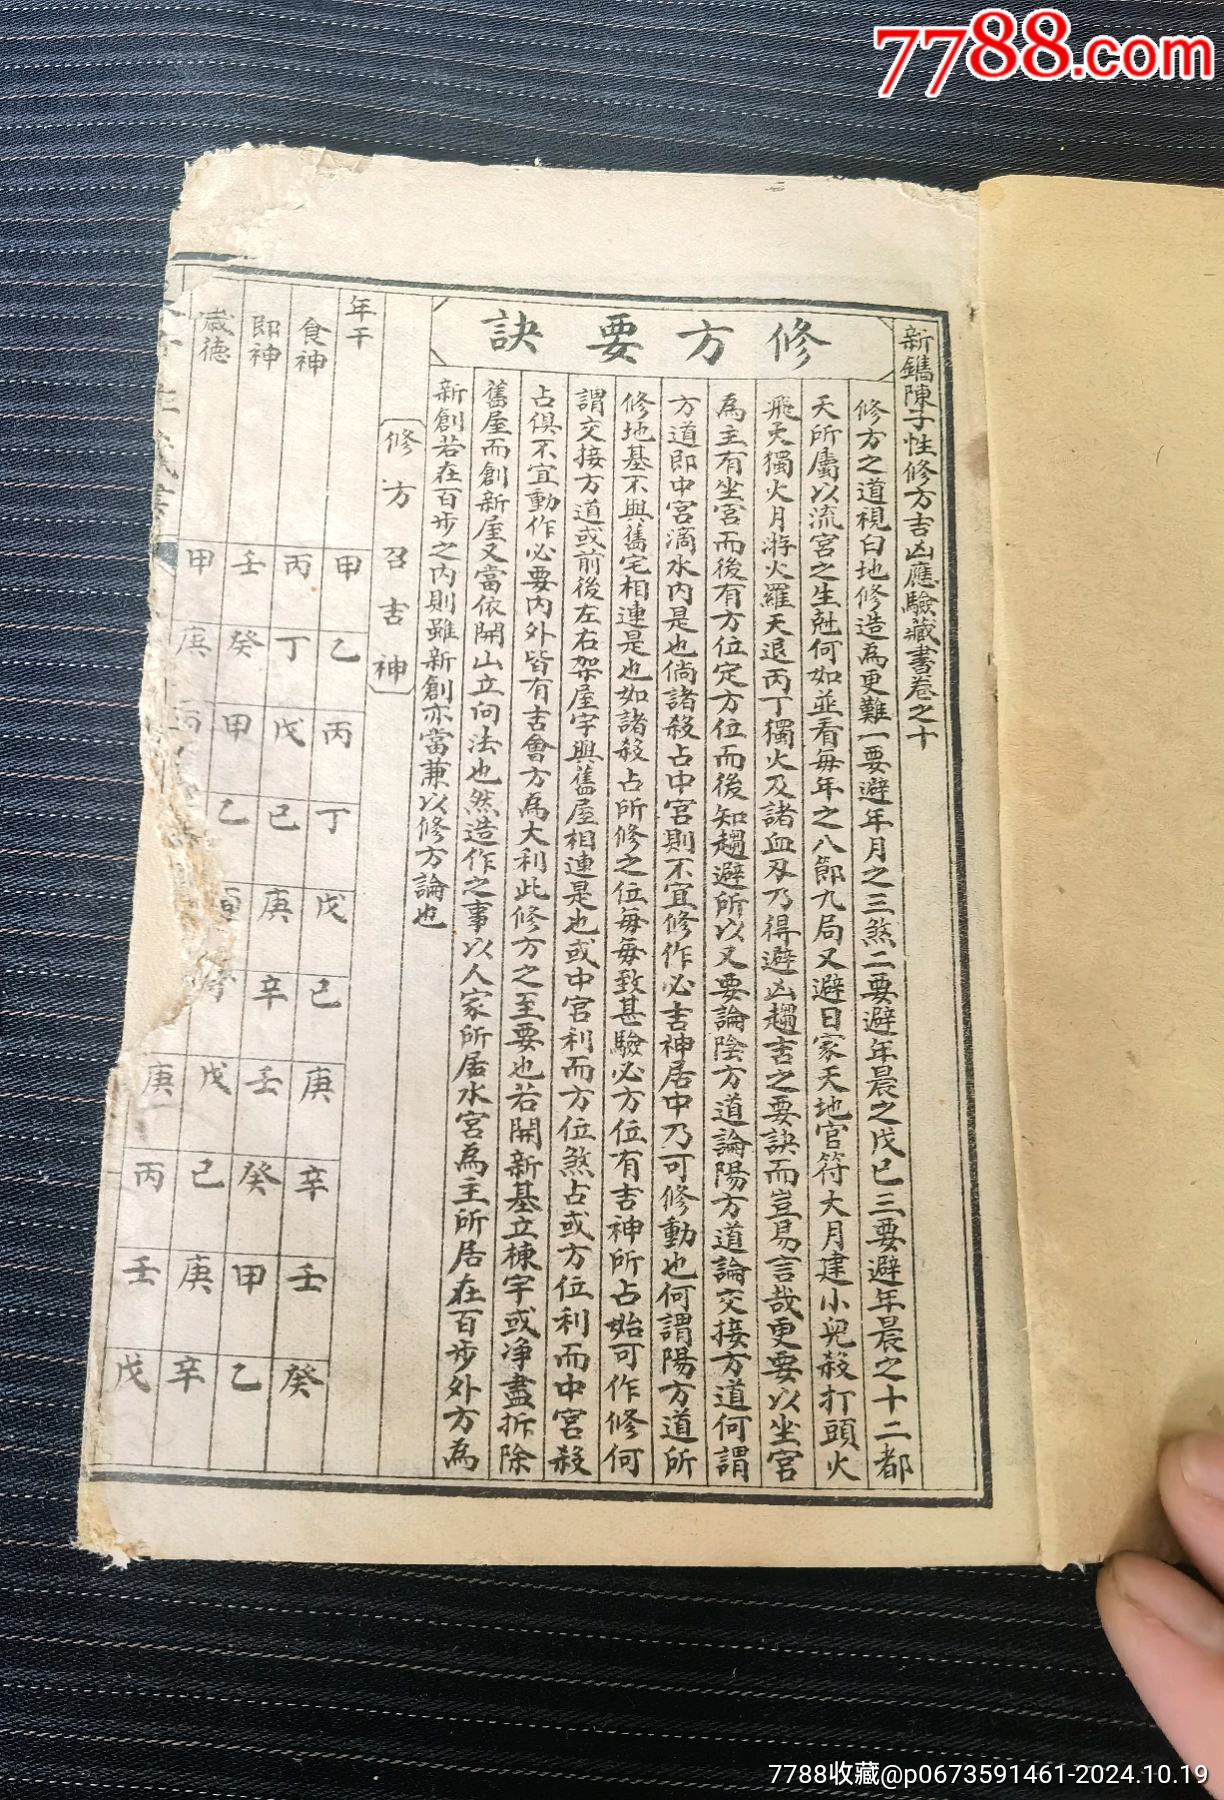 7788.com
新鐫陳子性修方吉凶應驗藏書卷之十
修方要訣
修方之道視白地修造為更難一要避年月之三煞二要避年晨之戊己三要避年晨之十二都
天所屬以流宮之生尅何如並看每年之八節九局又避日家天地官符大月建小兒殺打頭火
飛天獨火月游火羅天退丙丁獨火及諸血刃乃得避凶趨吉之要訣而豈易言哉更要以坐宮
為主有坐宮而後有方位定方位而後知趨避所以又要論陰方道論陽方道論交接方道何謂
方道即中宮滴水內是也倘諸殺占中宮則不宜修作必吉神居中乃可修動也何謂陽方道所
修地基不與舊宅相連是也如諸殺占所修之位每每致甚驗必方位有吉神所占始可作修何
謂交接方道或前後左右架屋宇與舊屋相連是也或中宮利而方位煞占或方位利而中宮殺
占俱不宜動作必要內外皆有吉會方為大利此修方之至要也若開新基立棟宇或净盡拆除
舊屋而創新屋又當依開山立向法也然造作之事以人家所居水宮為主所居在百步外方為
新創若在百步之內則雖新創亦當兼以修方論也
修方召吉神
年干 甲 乙 丙 丁 戊 己 庚 辛 壬 癸
食神 丙 丁 戊 己 庚 辛 壬 癸 甲 乙
即神 壬 癸 甲 乙 戊 己 庚 辛
歲德 甲 庚 庚 丙 壬 戊
7788收藏@p0673591461-2024.10.19